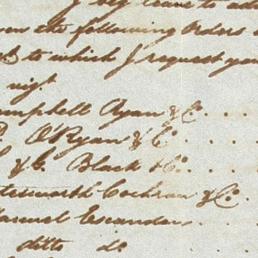 I beg leave to ad
the following Orders
to which I request you
nigt
ampbell Ryan & Co. . . .
O'Ryan & Co . . .
& G. Black & Co. . . .
tersworth Cochran & Co. .
anuel Escandon . . .
ditto do. . .